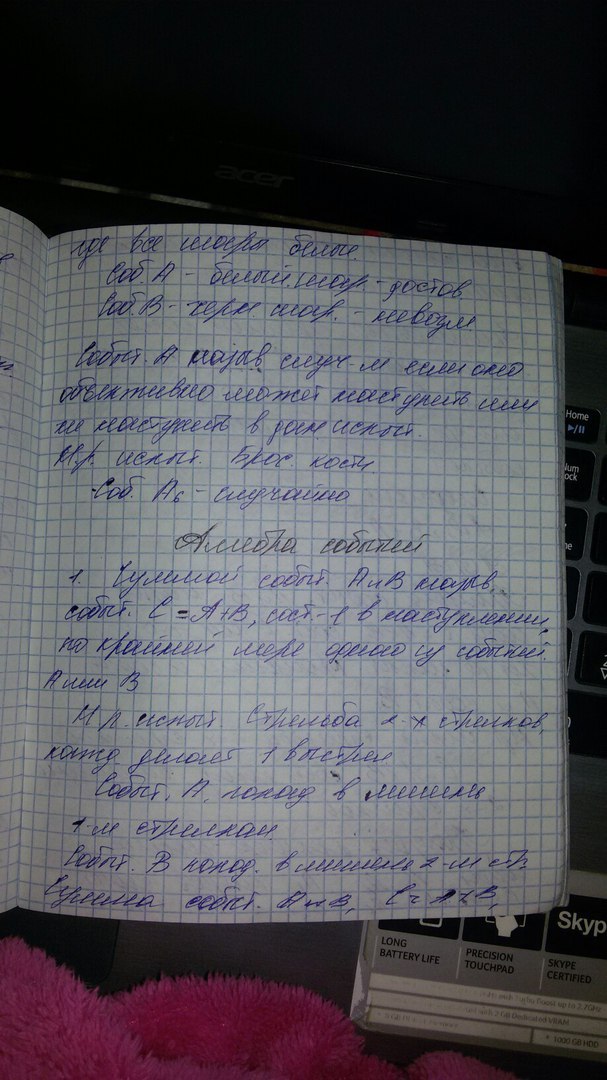 acer
где все шары белые.
Соб. А - белый шар. - достов.
Соб. В - черн. шар. - невозм.
Событ. А назыв случ-м если оно
объективно может наступить или
не наступить в дан испыт.
Нр. испыт. Брос. кости
Соб. А₆ - случайно
Алгебра событий
1. Суммой событ. А и В назыв.
событ. С = А+В, сост-е в наступлении,
по крайней мере одного из событий
А или В
Нр. испыт. Стрельба 2-х стрелков,
кажд. делает 1 выстрел
Событ. А, попад в мишень
1-м стрелком.
Событ. В попад. в мишень 2-м стр.
Сумма событ. А и В, С = А+В,
Home
Num
Lock
Skype
LONG
BATTERY LIFE
PRECISION
TOUCHPAD
SKYPE
CERTIFIED
Turbo Boost up to 2.7GHz
with 2 GB Dedicated VRAM
1000 GB HDD